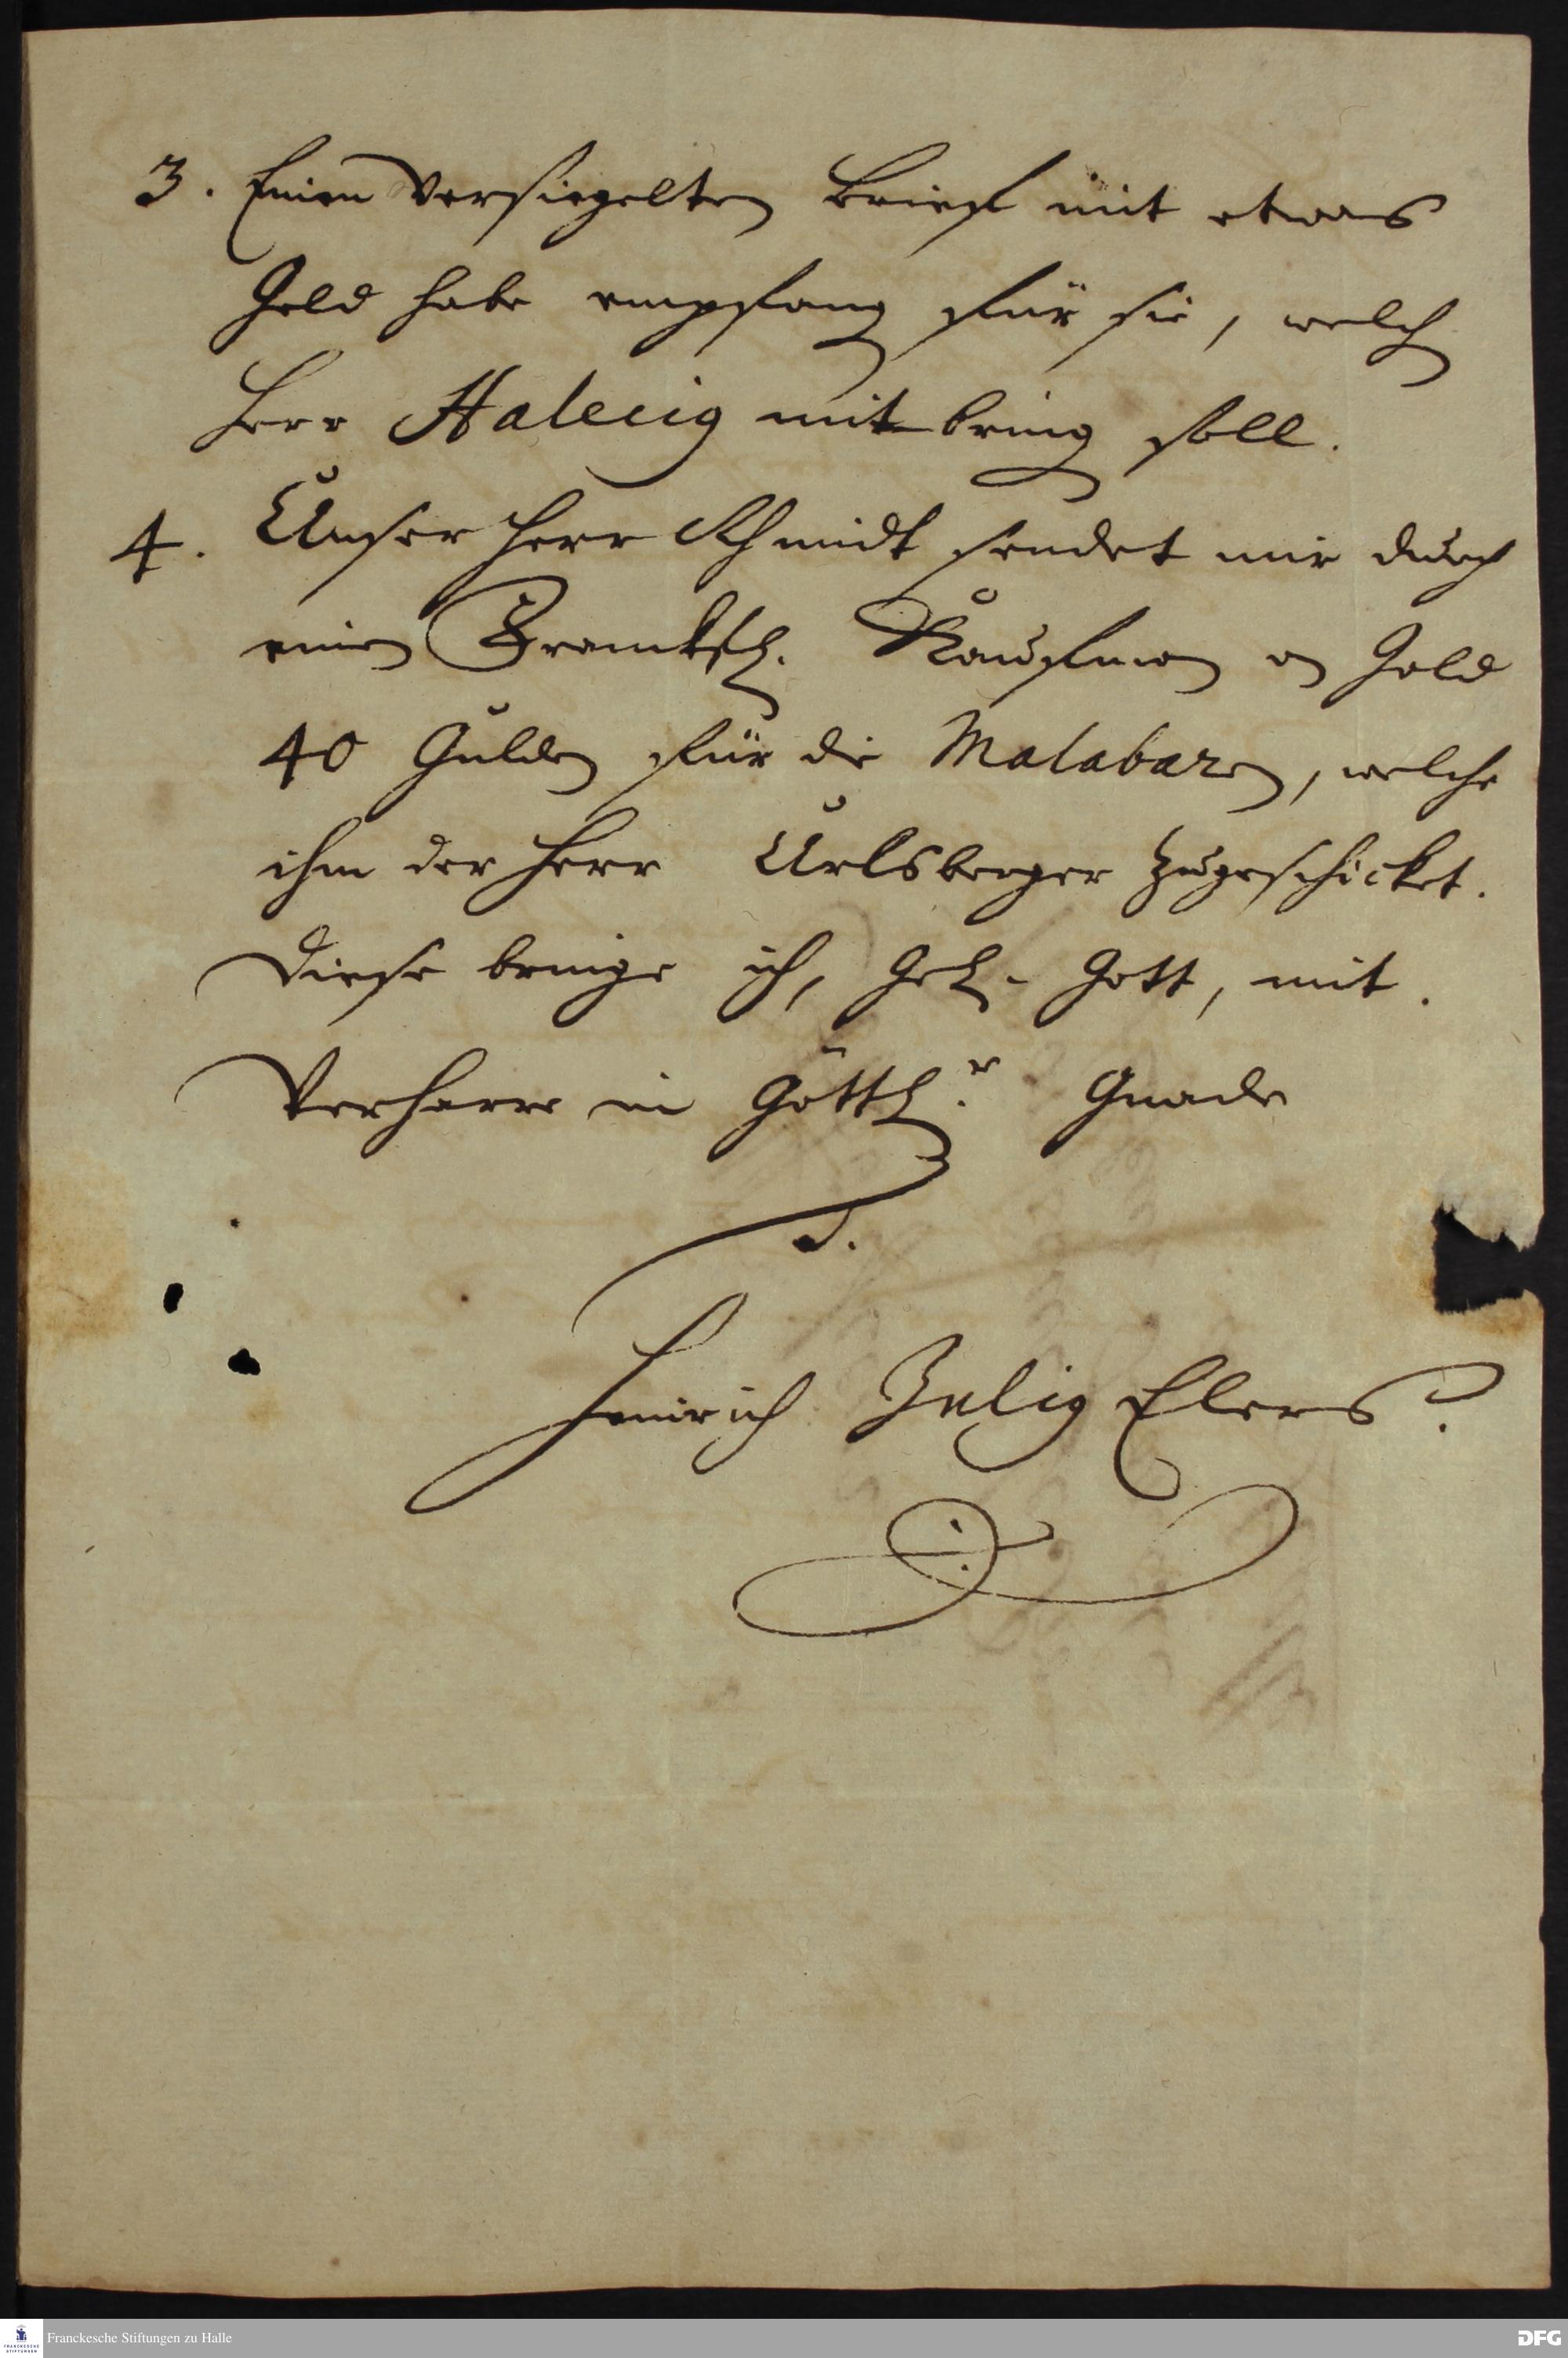 3. Einen Versiegelten Brief mit etwas
Geld habe empfang für sie, welch
Herr Halecig mit bring soll.
4. Unser Herr Schmidt sendet mir durch
einen Kaufman an Gold
40 Gulden für die Malabaren, welche
ihm der Herr Urlsberger zugeschicket.
Diese bringe ich, Gel. Gott, mit.
Verharre in Göttl.r Gnade
Heinrich Julig Elers
Franckesche Stiftungen zu Halle
FRANCKESCHE
STIFTUNGEN
DFG